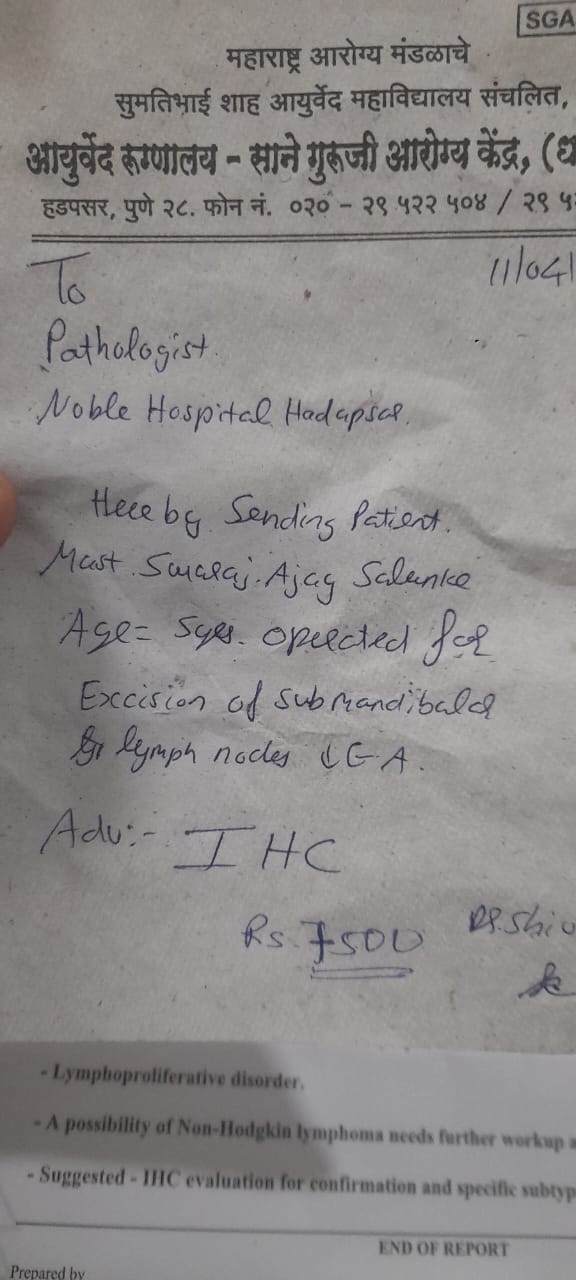 SGA
महाराष्ट्र आरोग्य मंडळाचे
सुमतिभाई शाह आयुर्वेद महाविद्यालय संचलित,
आयुर्वेद रुग्णालय - साने गुरूजी आरोग्य केंद्र, (ध
हडपसर, पुणे २८. फोन नं. ०२० - २९ ५२२ ५०४ / २९ ५
11/04/
To
Pathologist.
Noble Hospital Hadapsar.
Here by Sending Patient.
Mast. Swaraj. Ajay Salunke
Age = 5yrs. operated for
Excision of submandibular
lymph nodes G.A.
Adv:- IHC
Rs. 7500
Dr. Shiv
- Lymphoproliferative disorder.
- A possibility of Non-Hodgkin lymphoma needs further workup a
- Suggested - IHC evaluation for confirmation and specific subtyp
END OF REPORT
Prepared by